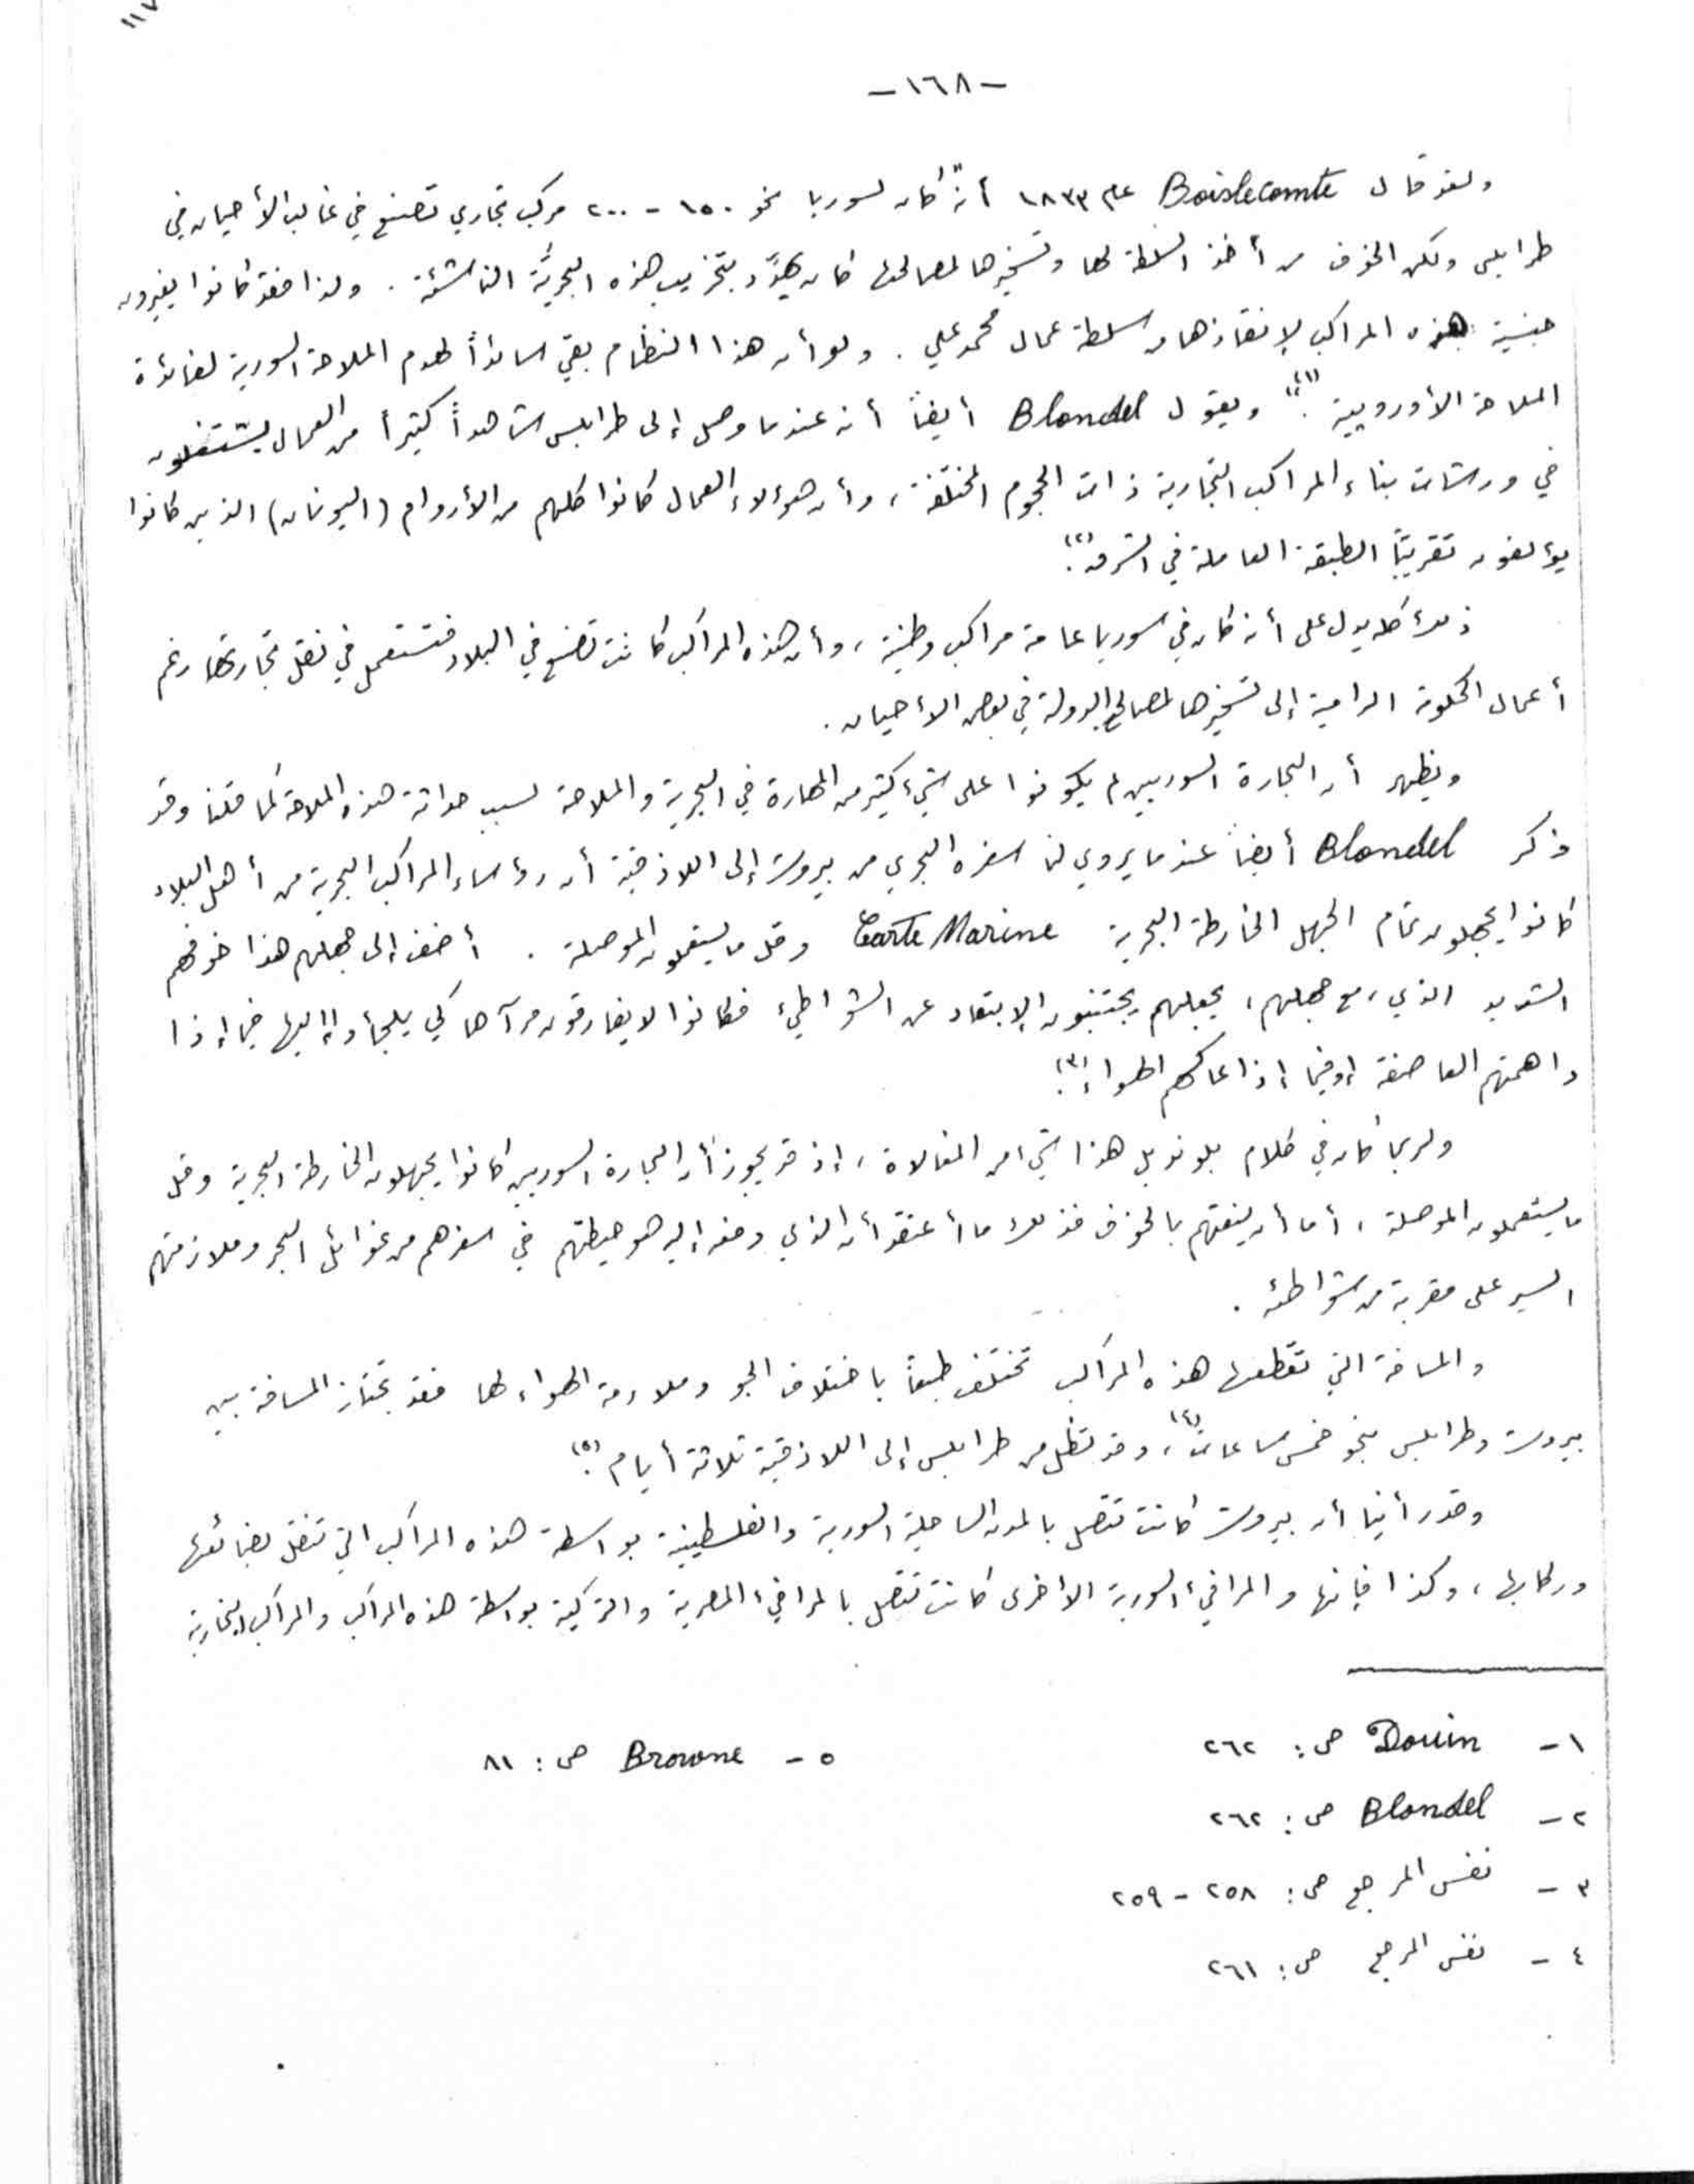 -١٦٨-
ولقد قال Boislecomte عام ١٨٣٣ أنّه كان لسوريا نحو ١٥٠ - ٢٠٠ مركب تجاري تصنع في غالب الأحيان في
طرابلس ولكن الخوف من أخذ السلطة لها وتسخيرها لمصالحها كان يهدّد بتخريب هذه البحريَّة الناشئة . ولذا فقد كانوا يغيرون
جنسية هذه المراكب لإنقاذها من سلطة عمال محمد علي . ولو أن هذا النظام بقي سائداً لهدم الملاحة السورية لفائدة
الملاحة الأوروبية (١). ويقول Blondel أيضاً أنه عندما وصل إلى طرابلس شاهد كثيراً من العمال يشتغلون
في ورشات بناء المراكب التجارية ذات الحجوم المختلفة ، وأن هؤلاء العمال كانوا كلهم من الأروام (اليونان) الذين كانوا
يؤلفون تقريباً الطبقة العاملة في الشرق (٢).
ذلك كله يدل على أنه كان في سوريا عامة مراكب وطنية ، وأن هذه المراكب كانت تصنع في البلاد فتستعمل في نقل تجارتها رغم
أعمال الحكومة الرامية إلى تسخيرها لمصالح الدولة في بعض الأحيان .
ويظهر أن البحارة السوريين لم يكونوا على شيء كثير من المهارة في البحرية والملاحة لسبب حداثة هذه الملاحة كما قلنا وقد
ذكر Blondel أيضاً عندما يروي لنا سفره البحري من بيروت إلى اللاذقية أن رؤساء المراكب البحرية من أهل البلاد
كانوا يجهلون تمام الجهل الخارطة البحرية Carte Marine وقل ما يستعملون الموصلة . أضف إلى جهلهم هذا خوفهم
الشديد الذي ، مع جهلهم ، يجعلهم يجتنبون الإبتعاد عن الشواطيء فكانوا لا يفارقون مرآها كي يلجأوا إليها فيما إذا
داهمتهم العاصفة أو فيما إذا عاكسهم الهواء (٣).
ولربما كان في كلام بلونديل هذا شيء من المغالاة ، إذ قد يجوز أن البحارة السوريين كانوا يجهلون الخارطة البحرية وقل
ما يستعملون الموصلة ، أما أن ينعتهم بالخوف فذلك ما أعتقد أن الذي دفعه إليه هو حيطتهم في سفرهم من غوائل البحر وملازمتهم
السير على مقربة من شواطئه .
والمسافة التي تقطعها هذه المراكب تختلف طبعاً باختلاف الجو وملاءمة الهواء لها فقد تجتاز المسافة بين
بيروت وطرابلس بنحو خمس ساعات (٤)، وقد تظل من طرابلس إلى اللاذقية ثلاثة أيام (٥).
وقد رأينا أن بيروت كانت تتصل بالمدن الساحلية السورية والفلسطينية بواسطة هذه المراكب التي تنقل بضائعها
وركابها ، وكذا فإنها والمرافيء السورية الأخرى كانت تتصل بالمرافيء المصرية والتركية بواسطة هذه المراكب والمراكب التجارية
١- Douin ص : ٢٦٢
٢- Blondel ص : ٢٦٢
٣- نفس المرجع ص : ٢٥٨ - ٢٥٩
٤- نفس المرجع ص : ٢٦١
٥- Browne ص : ٨١